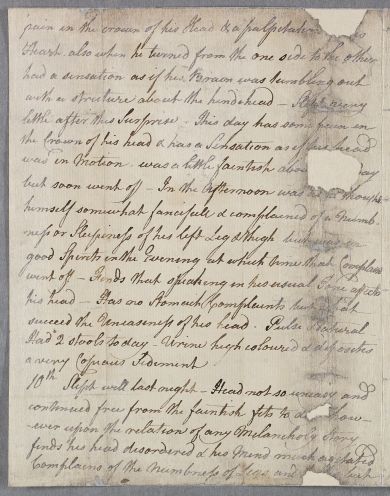 pain in the crown of his Head & a palpitation
Heart also when he turned from the one side to the other
had a sensation as if his Brain was tumbling out
with a stricture about the hindhead – very
little after this Surprise. This day has some pain in
the Crown of his head & has a Sensation as if his head
was in Motion was a little faintish abo day
but soon went off – In the Afternoon was
himself somewhat fancifull & complained of a Numb-
ness or Sleepiness of his left Leg & thigh but was in
good Spirits in the Evening at which time that Complaint
went off – Finds that speaking in his usual Tone affects
his head – Has no Stomach Complaints but
succeed the Uneasiness of his head. Pulse natural
Had 2 Stools to day – Urine high coloured & deposites
a very Copious Sediment
10th Slept well last night – Head not so uneasy and
continued free from the faintish fits to day how-
ever upon the relation of any Melancholy Story
finds his head disordered & his Mind much agitated
Complains of the Numbness of and